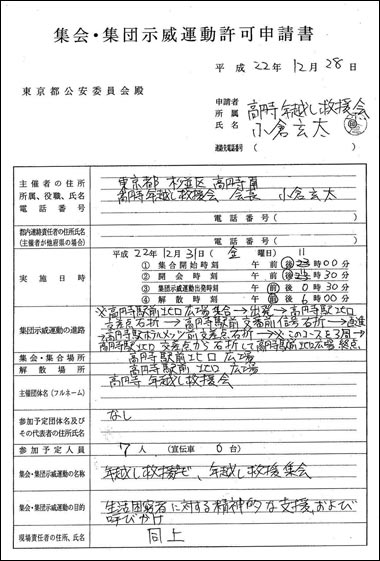 集会・集団示威運動許可申請書
平成22年12月28日
東京都公安委員会殿
申請者
所属 高円寺年越し救援会
氏名 小倉玄太
連絡先電話番号( )
主催者の住所
所属、役職、氏名
電話番号
東京都 杉並区 高円寺南
高円寺年越し救援会 会長 小倉玄太
電話番号( )
都内連絡責任者の住所氏名
(主催者が他府県の場合)
電話番号( )
実施日時
平成22年12月31日(金 曜日)
① 集合開始時刻 午 前 後 23時00分
② 開会時刻 午 前 後 時30分
③ 集団示威運動出発時刻 午 前 後 0時30分
④ 解散時刻 午 前 後 6時00分
集団示威運動の進路
※高円寺駅前北口広場 集合→出発→高円寺駅北口
交差点右折→高円寺駅前交番前信号右折→直進
→高円寺駅前交差点右折→※このコースを3周→
高円寺駅北口交差点から右折して高円寺駅前北口広場終点
集会・集合場所 高円寺駅前北口広場
解散場所 高円寺駅前北口広場
主催団体名(フルネーム) 高円寺年越し救援会
参加予定団体名及び
その代表者の住所氏名
なし
参加予定人員 7人 (宣伝車 0台)
集会・集団示威運動の名称 年越し救援デモ、年越し救援集会
集会・集団示威運動の目的
生活困窮者に対する精神的な支援、および
呼びかけ
現場責任者の住所、氏名 同上